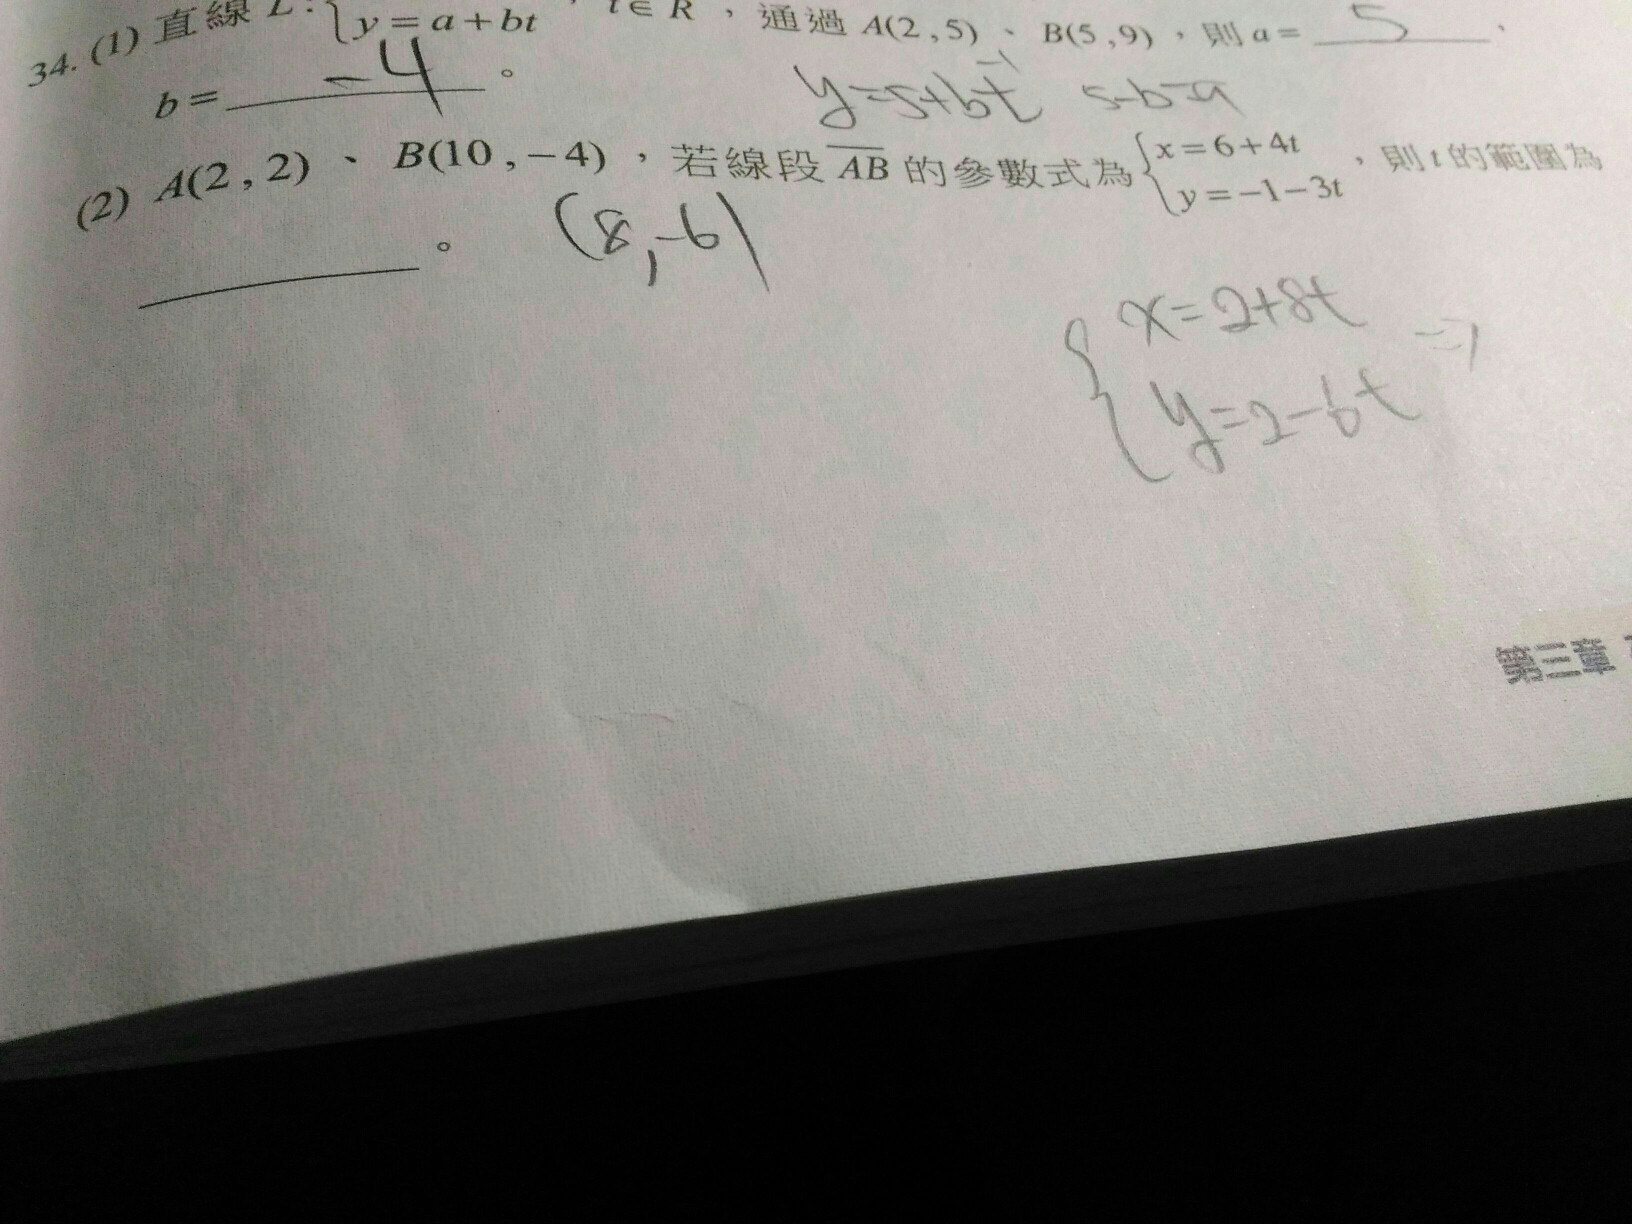 34. (1) 直線 L：{y = a + bt ， t ∈ R ，通過 A(2 , 5) 、 B(5 , 9) ，則 a = 5 、
b = -4 。
y=5+bt -1 5-b=9
(2) A(2 , 2) 、 B(10 , −4) ，若線段 AB 的參數式為 {x = 6 + 4t
y = −1 − 3t ，則 t 的範圍為
。
(8,-6)
x=2+8t
y=2-6t
第三章